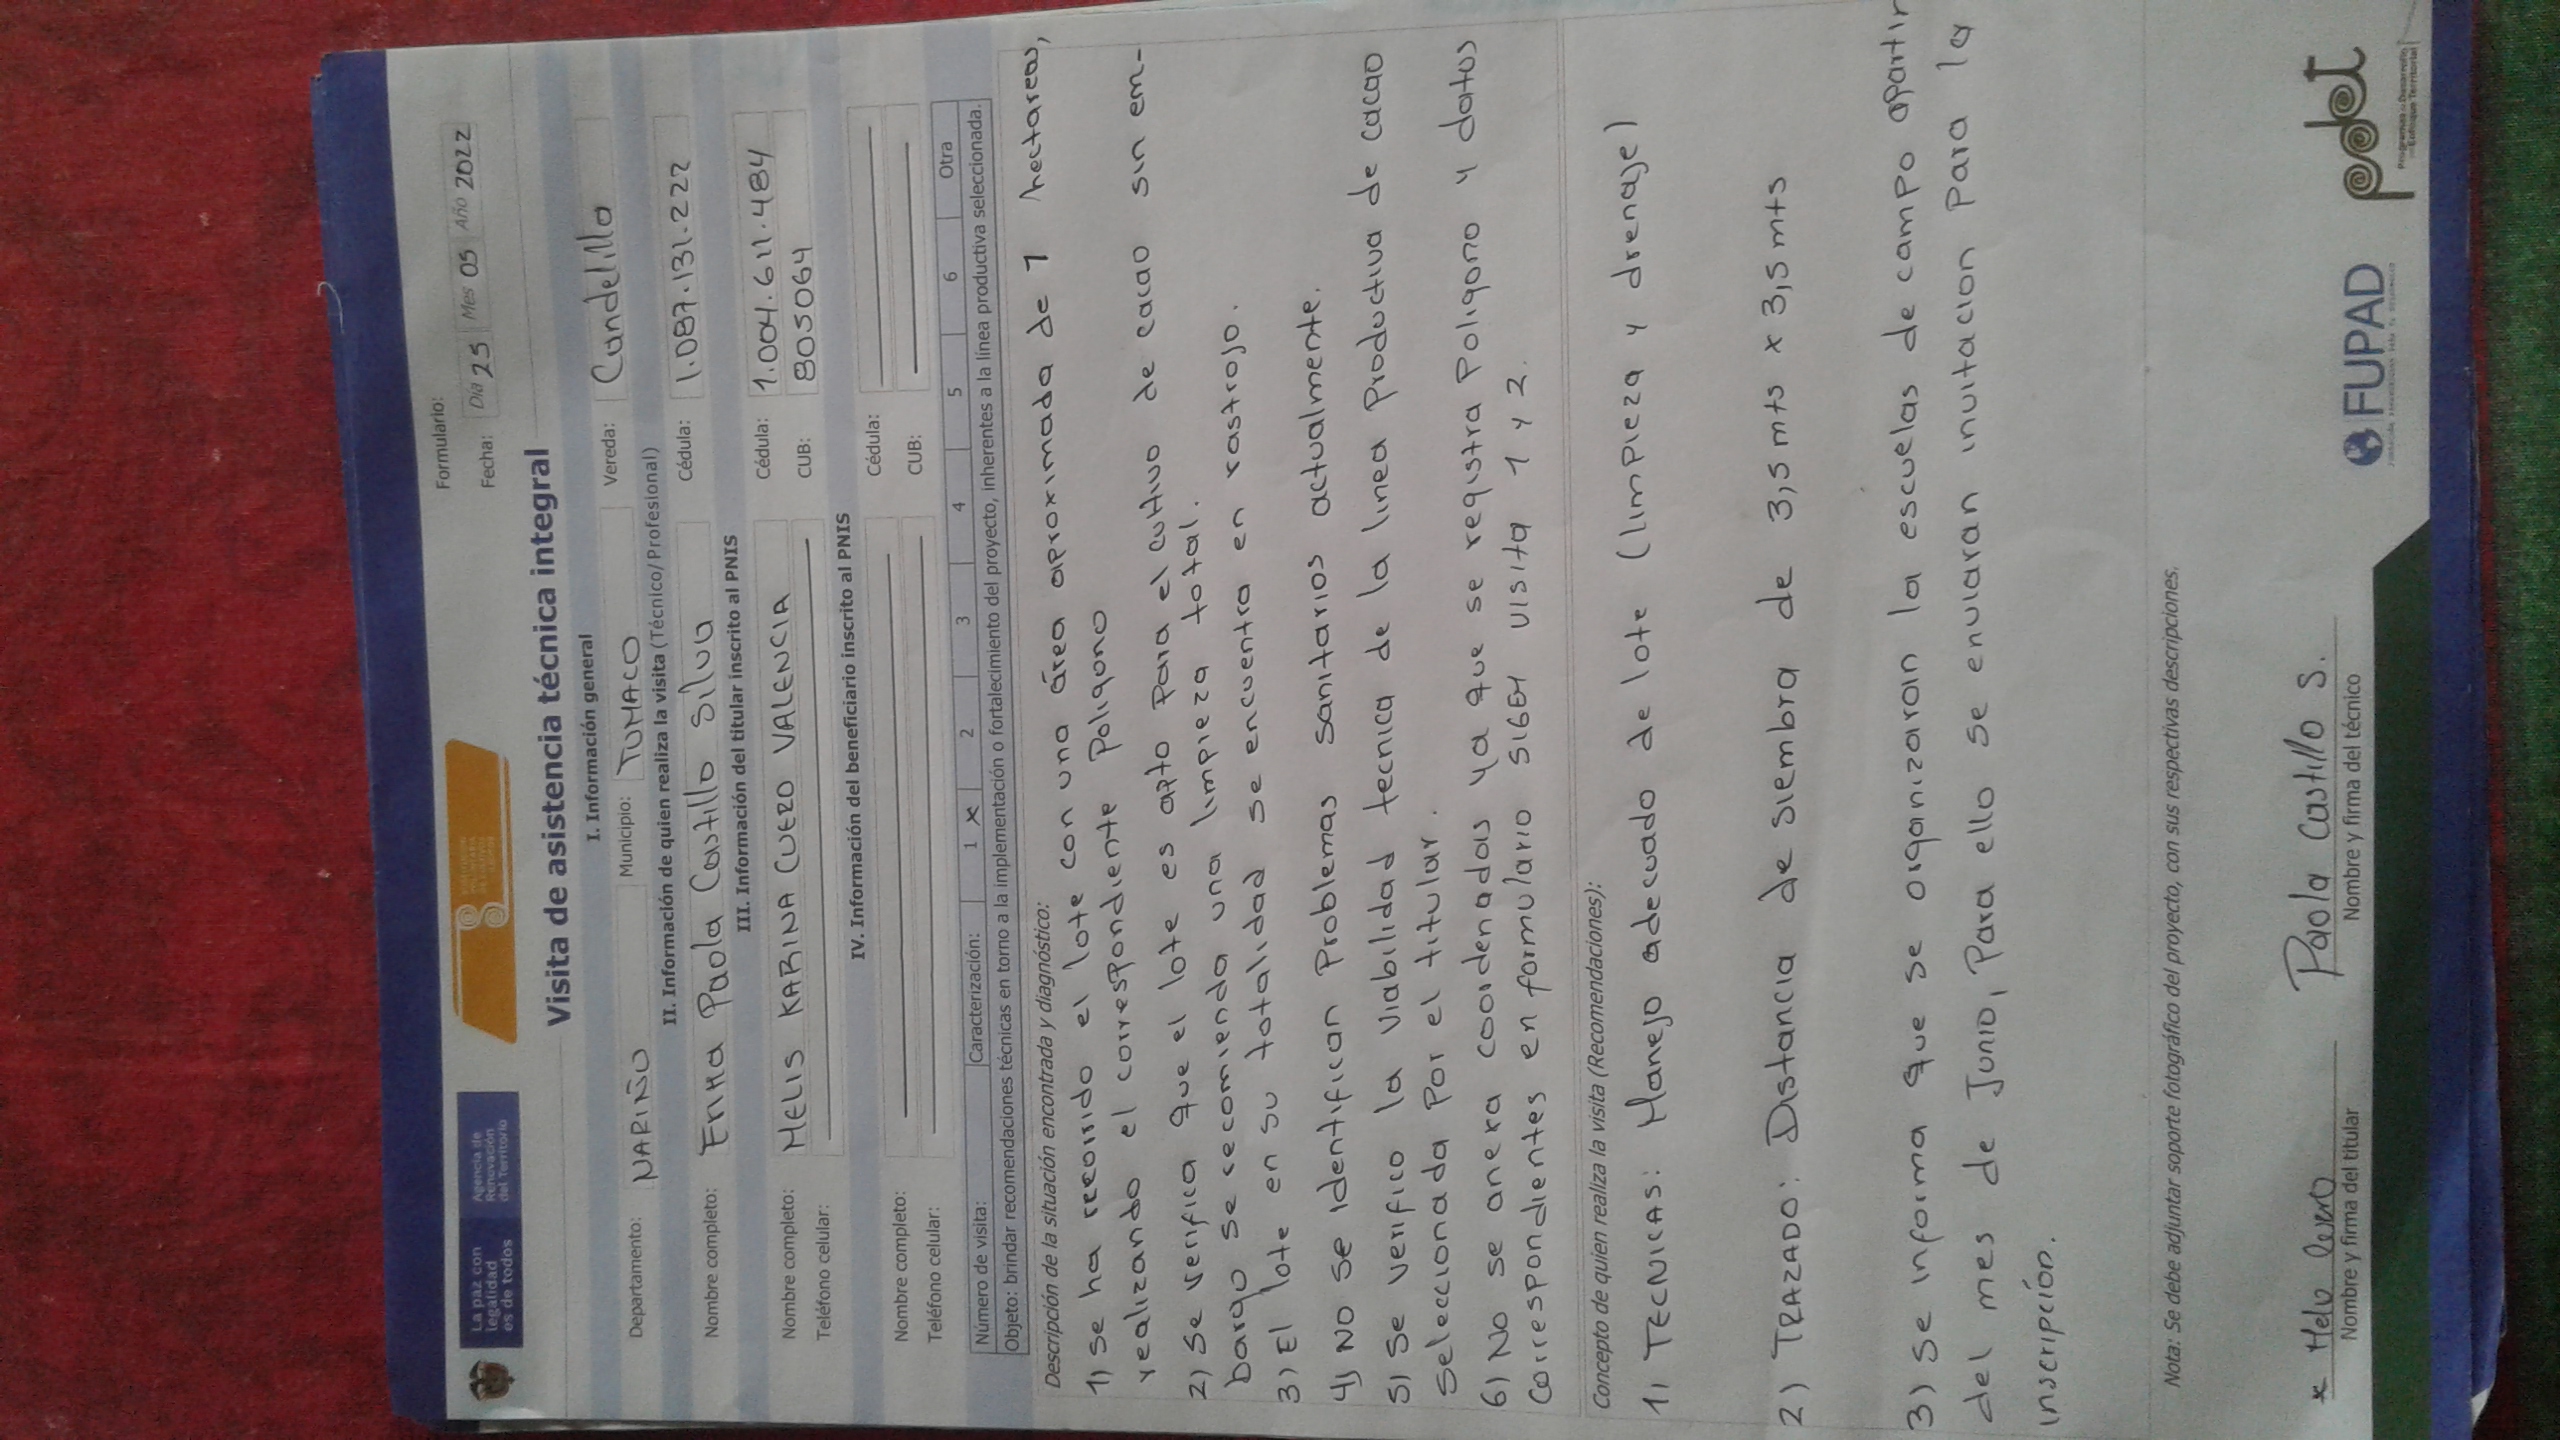 La paz con
legalidad
es de todos
Agencia de
Renovación
del Territorio
Formulario:
Fecha: Día 25 Mes 05 Año 2022
Visita de asistencia técnica integral
I. Información general
Departamento: NARIÑO Municipio: TUMACO Vereda: Candelillo
II. Información de quien realiza la visita (Técnico/ Profesional)
Nombre completo: Erika Paola Castillo Silva Cédula: 1.087.131.222
III. Información del titular inscrito al PNIS
Nombre completo: MELIS KARINA CUERO VALENCIA Cédula: 1.004.611.484
Teléfono celular: CUB: 805064
IV. Información del beneficiario inscrito al PNIS
Nombre completo: Cédula:
Teléfono celular: CUB:
Número de visita: Caracterización: 1 x 2 3 4 5 6 Otra
Objeto: brindar recomendaciones técnicas en torno a la implementación o fortalecimiento del proyecto, inherentes a la línea productiva seleccionada.
Descripción de la situación encontrada y diagnóstico:
1) se ha recorrido el lote con una área aproximada de 1 hectareas,
realizando el correspondiente Poligono
2) se verifica que el lote es apto Para el cultivo de cacao sin em-
bargo se recomienda una limpieza total.
3) El lote en su totalidad se encuentra en rastrojo.
4) No se identifican Problemas sanitarios actualmente.
5) se verifico la viabilidad tecnica de la linea Productiva de cacao
seleccionada Por el titular.
6) No se anexa coordenadas ya que se registra Poligono y datos
correspondientes en formulario SIGEH visita 1 y 2.
Concepto de quien realiza la visita (Recomendaciones):
1) TECNICAS: Manejo adecuado de lote (limpieza y drenaje)
2) TRAZADO: Distancia de siembra de 3,5 mts x 3,5 mts
3) se informa que se organizaran la escuelas de campo apartir
del mes de Junio, Para ello se enviaran invitacion Para la
inscripción.
Nota: Se debe adjuntar soporte fotográfico del proyecto, con sus respectivas descripciones.
x Melis Cuero
Nombre y firma del titular
Paola Castillo S.
Nombre y firma del técnico
FUPAD
pdet
Programas de Desarrollo
con Enfoque Territorial